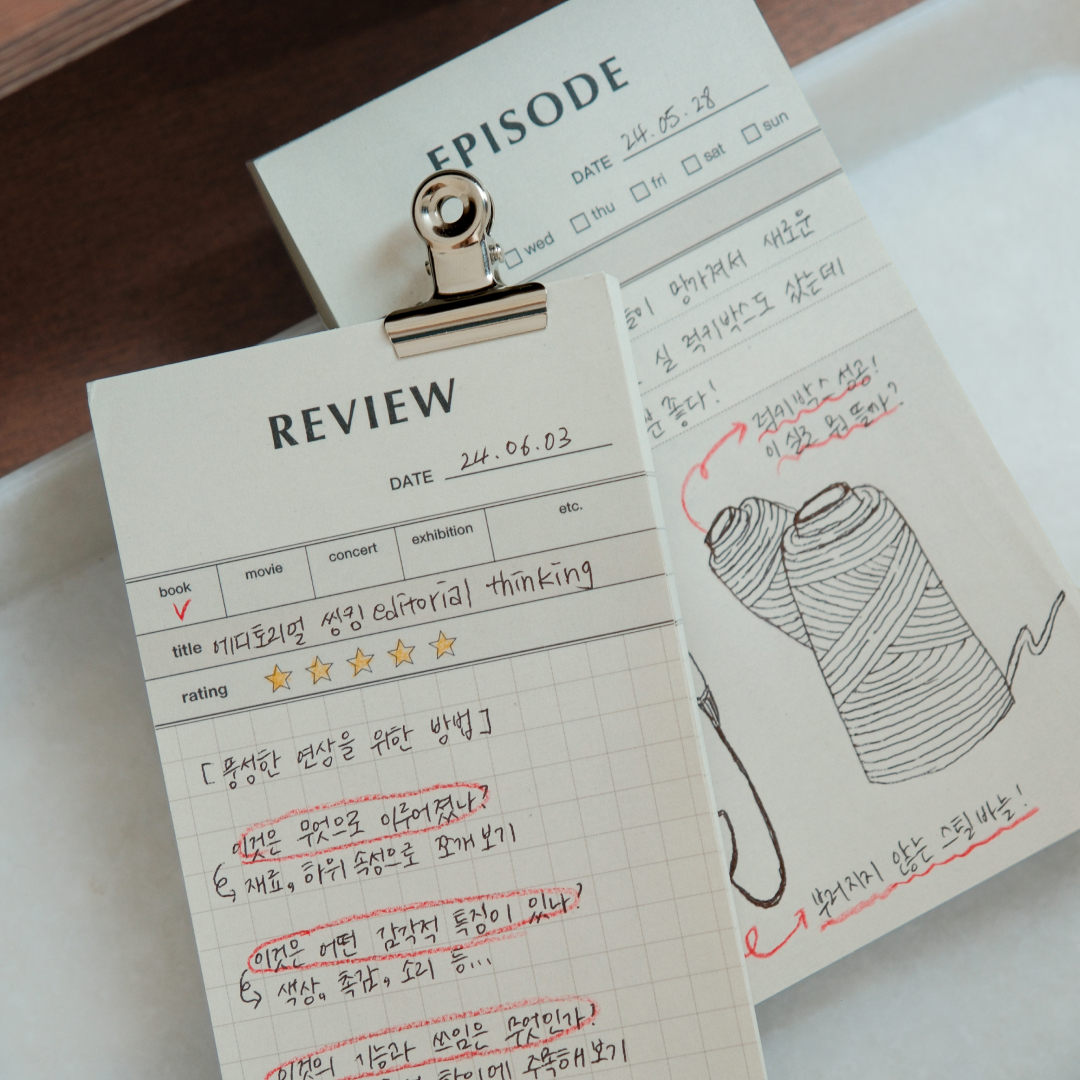 EPISODE
DATE 24.05.28
wed thu fri sat sun
망가져서 새로운
실 럭키박스도 샀는데
좋다!
럭키박스 성공!
이 실로 뭐 뜰까?
부러지지 않는 스틸바늘!
REVIEW
DATE 24.06.03
book movie concert exhibition etc.
title 에디토리얼 씽킹 editorial thinking
rating
[풍성한 연상을 위한 방법]
이것은 무엇으로 이루어졌나?
재료, 하위 속성으로 쪼개보기
이것은 어떤 감각적 특징이 있나?
색상, 촉감, 소리 등...
이것의 기능과 쓰임은 무엇인가?
주목해보기